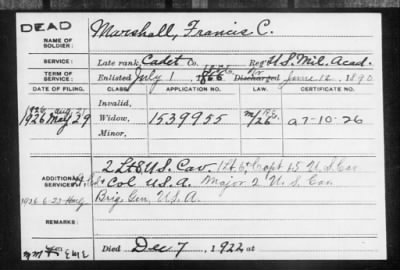 DEAD
NAME OF SOLDIER: Marshall, Francis C.
SERVICE: Late rank, Cadet Co., Reg't U.S. Mil. Acad.
TERM OF SERVICE: Enlisted July 1 Discharged June 12, 1890
DATE OF FILING. CLASS. APPLICATION NO. LAW. CERTIFICATE NO.
1926 Aug. 21
Invalid,
1926 May 29 Widow, 1539955 A-7-10-26
Minor,
2 Lt 8 U.S. Cav. 1 Lt 6 + Capt 15 U.S. Cav
ADDITIONAL SERVICES: + Col U.S.A. Major 2 U.S. Cav
Brig. Gen. U.S.A.
REMARKS:
Died Dec 7, 1922, at